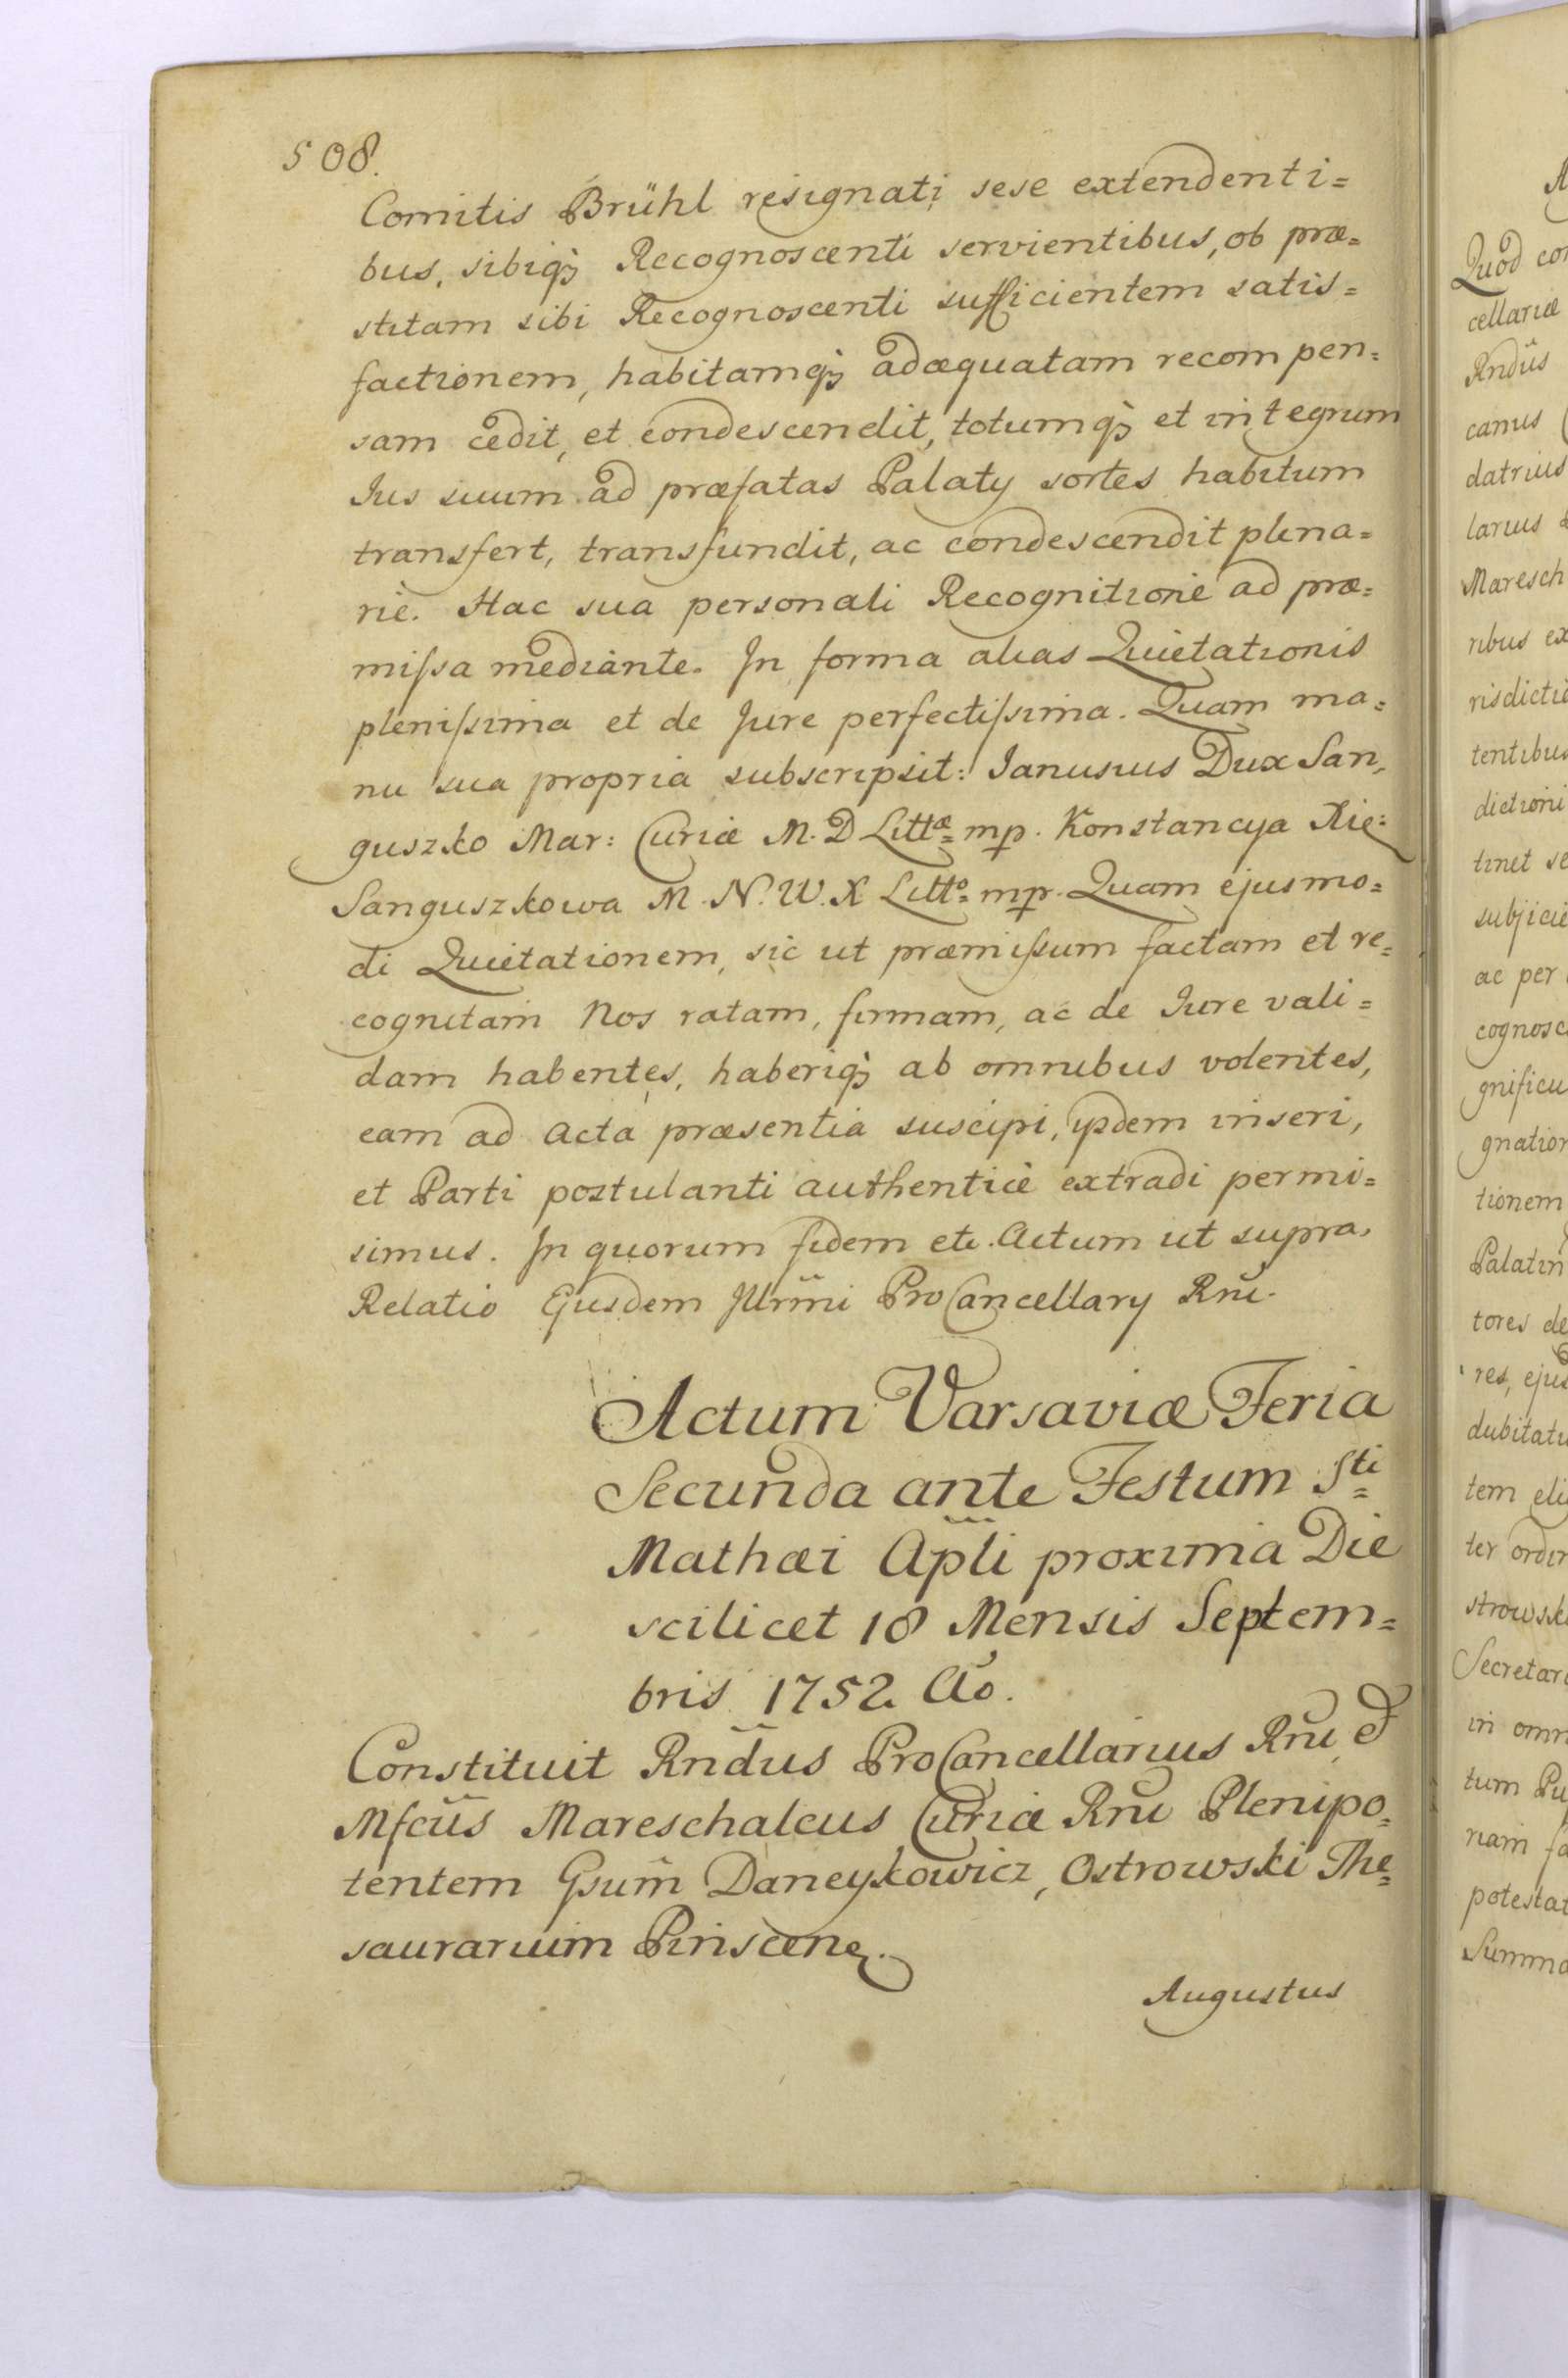 508.
Comitis Brühl resignati sese extendenti=
bus, sibiq; Recognoscenti servientibus, ob præ=
stitam sibi Recognoscenti sufficientem satis=
factionem, habitamq; adæquatam recompen=
sam cedit, et condescendit, totumq; et integrum
Jus suum ad præfatas Palaty sortes habitum
transfert, transfundit, ac condescendit plena=
riè. Hac sua personali Recognitione ad præ=
missa mediante. In forma alias Quietationis
plenissima et de Jure perfectissima. Quam ma=
nu sua propria subscripsit: Janusius Dux San,
guszko Mar: Curiæ M. D Littæ mp. Konstancya Xie:
Sanguszkowa M. N. W. X Litto mp. Quam ejusmo=
di Quietationem, sic ut præmissum factam et re=
cognitam Nos ratam, firmam, ac de Jure vali=
dam habentes, haberiq; ab omnibus volentes,
eam ad Acta præsentia suscipi, ijsdem inseri,
et Parti postulanti authenticè extradi permi=
simus. In quorum fidem etc. Actum ut supra.
Relatio Ejusdem Illrmi ProCancellary Rni.
Actum Varsaviæ Feria
Secunda ante Festum Sti
Mathæi Apli proxima Die
scilicet 18 Mensis Septem=
bris 1752 Ao.
Constituit Rndus ProCancellarius Rni et
Mfcus Mareschalcus Curiæ Rni Plenipo=
tentem Gsum Daneykowicz, Ostrowski The=
saurarium Pinscen.
Augustus
A
Quod co
cellariæ
Rndus
canus
datrius
larius
Maresch
ribus ex
risdicti
tentibus
dictioni
tinet se
subjicie
ac per
cognosc
gnificu
gnation
tionem
Palatin
tores de
res, ejus
dubitatu
tem eli
ter ordin
strowsk
Secretar
in omn
tum Pu
riam fa
potestat
Summa